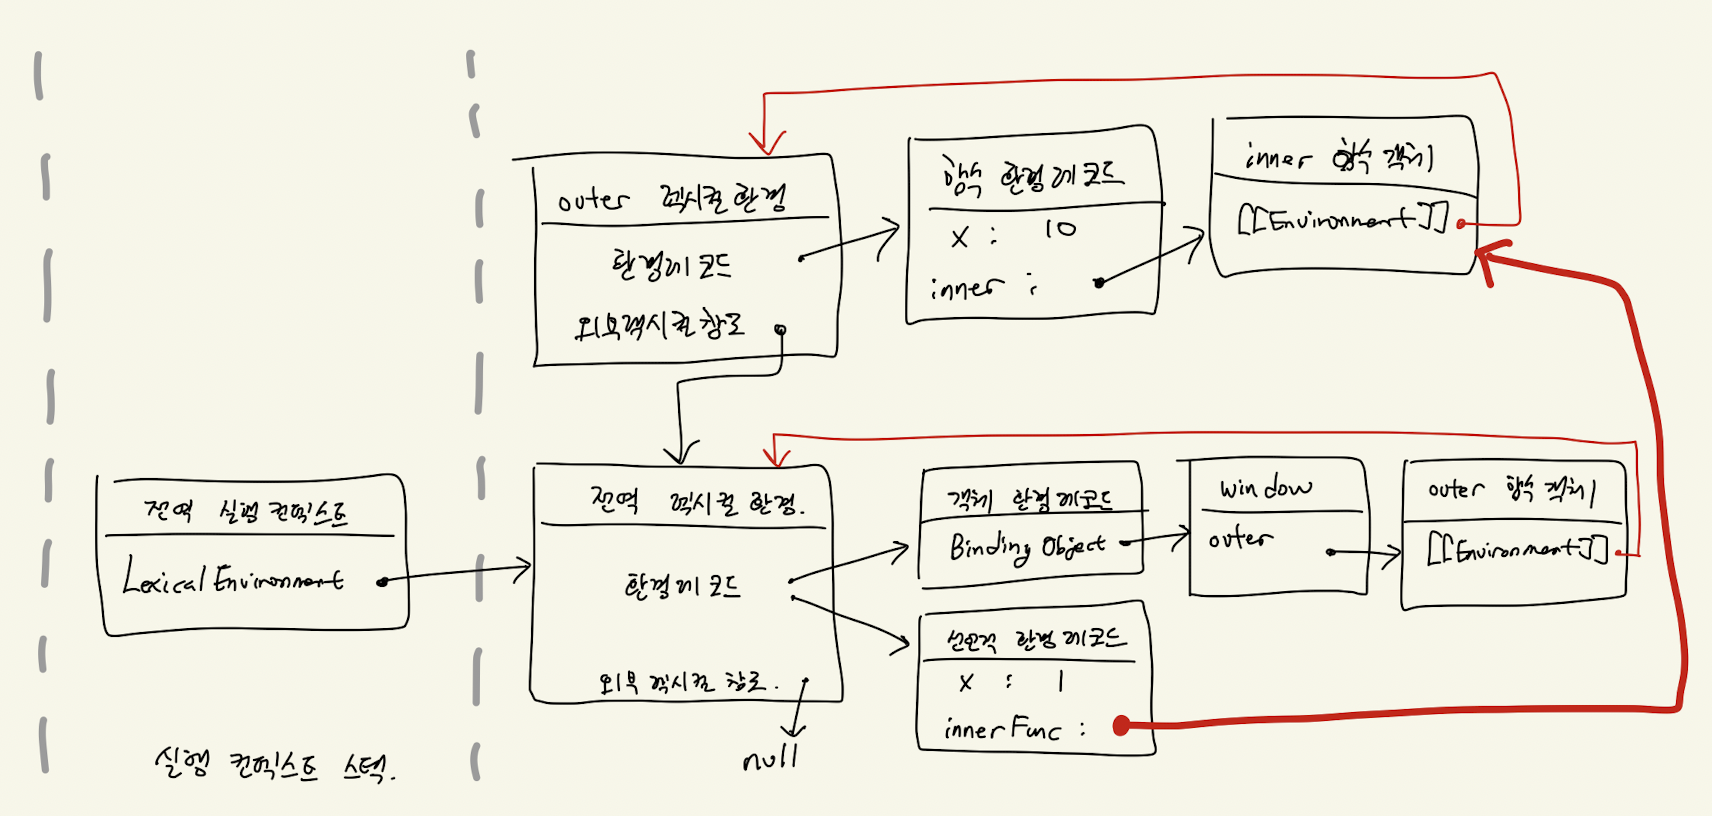 outer 렉시컬 환경
환경레코드
외부렉시컬참조
함수 환경레코드
x : 10
inner :
inner 함수 객체
[[Environment]]
전역 실행 컨텍스트
Lexical Environment
전역 렉시컬 환경.
환경레코드
외부 렉시컬 참조.
null
객체 환경레코드
Binding Object
window
outer
outer 함수 객체
[[Environment]]
선언적 환경레코드
x : 1
innerFunc :
실행 컨텍스트 스택.